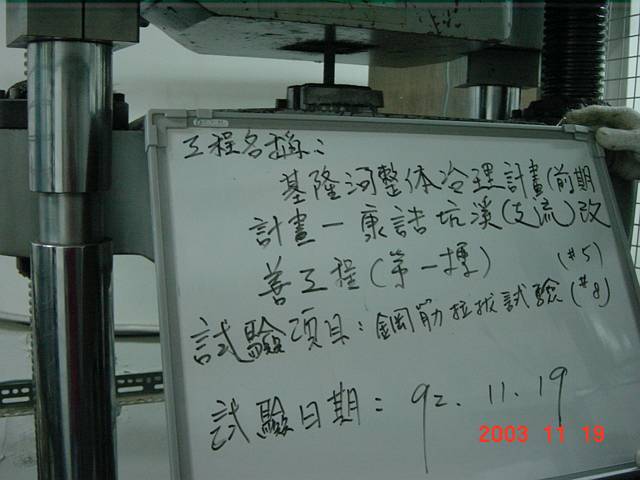 工程名稱：
基隆河整体治理計畫(前期
計畫—康誥坑溪(支流)改
善工程(第一標) (#5)
試驗項目：鋼筋拉拔試驗(#8)
試驗日期：92.11.19
2003 11 19